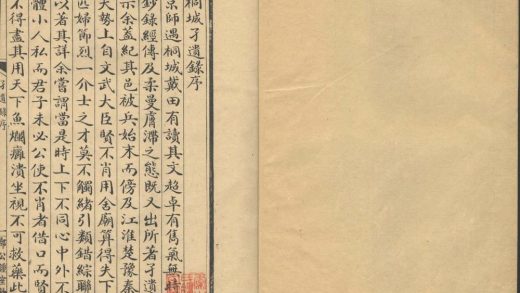 桐城孑遺錄序
京師遇桐城戴田有讀其文超卓有雋氣無時
鈔錄經傳及柔曼膚滯之態既又出所著孑遺
示余蓋紀其邑被兵始末而傍及江淮楚豫秦
大勢上自文武大臣賢不肖用舍廟算得失下
匹婦節烈一介士之才莫不觸緒引類錯綜聯
以著其詳余嘗謂當是時上下不同心中外不
體小人私而君子未必公使不肖者借口而賢
不得盡其用天下魚爛癰潰坐視不可救藥此
孑遺錄序